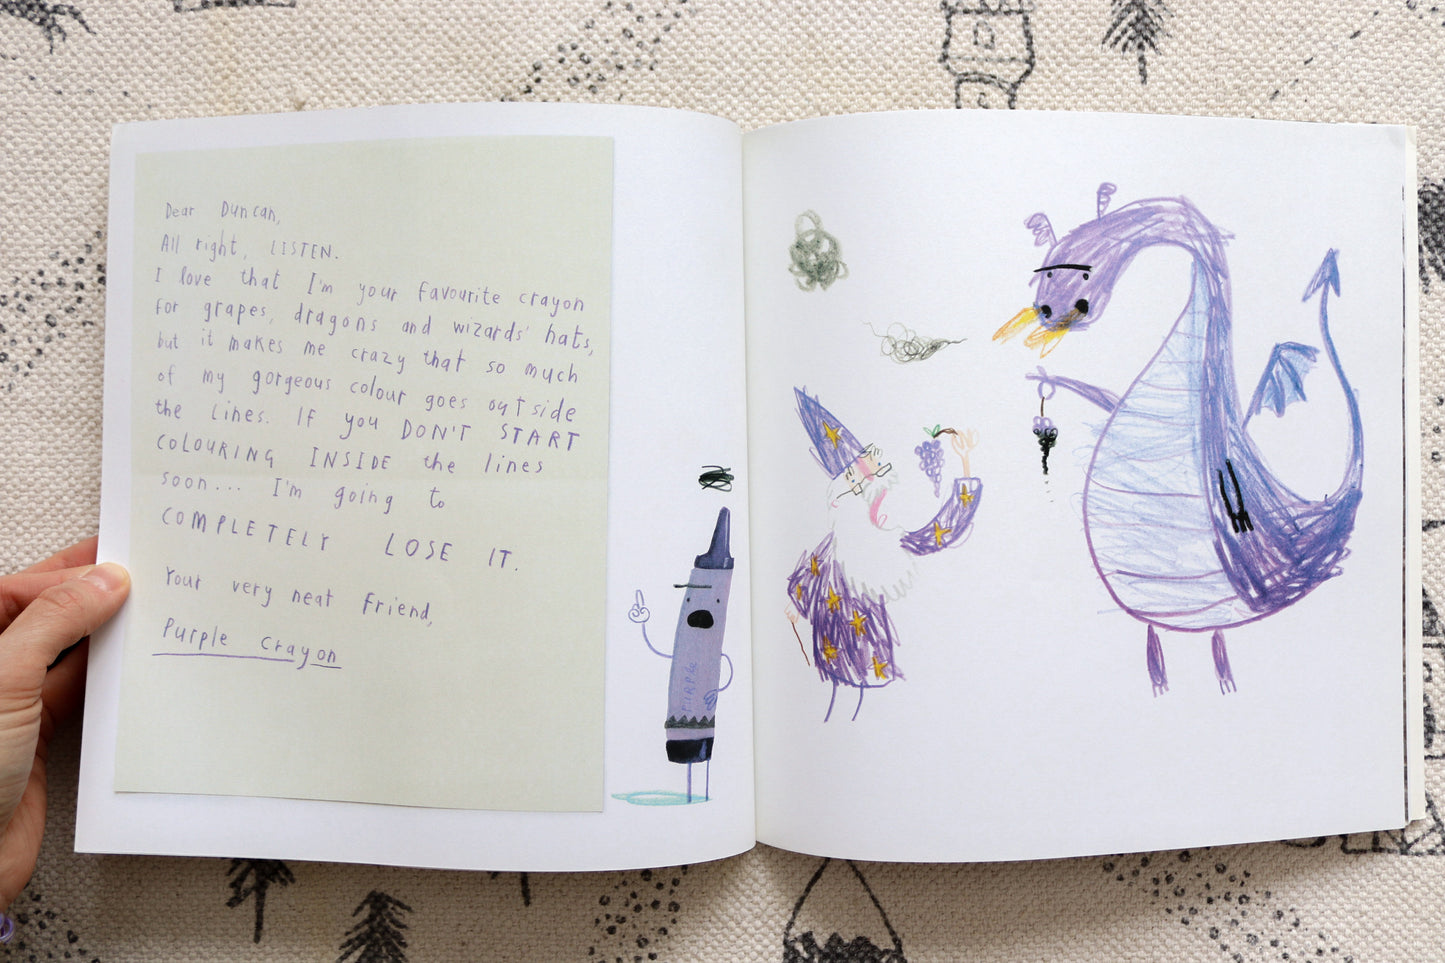 Dear Duncan,
All right, LISTEN.
I love that I'm your favourite crayon
for grapes, dragons and wizards' hats,
but it makes me crazy that so much
of my gorgeous colour goes outside
the lines. If you DON'T START
COLOURING INSIDE the lines
soon... I'm going to
COMPLETELY LOSE IT.
Your very neat friend,
Purple Crayon
PURPLE